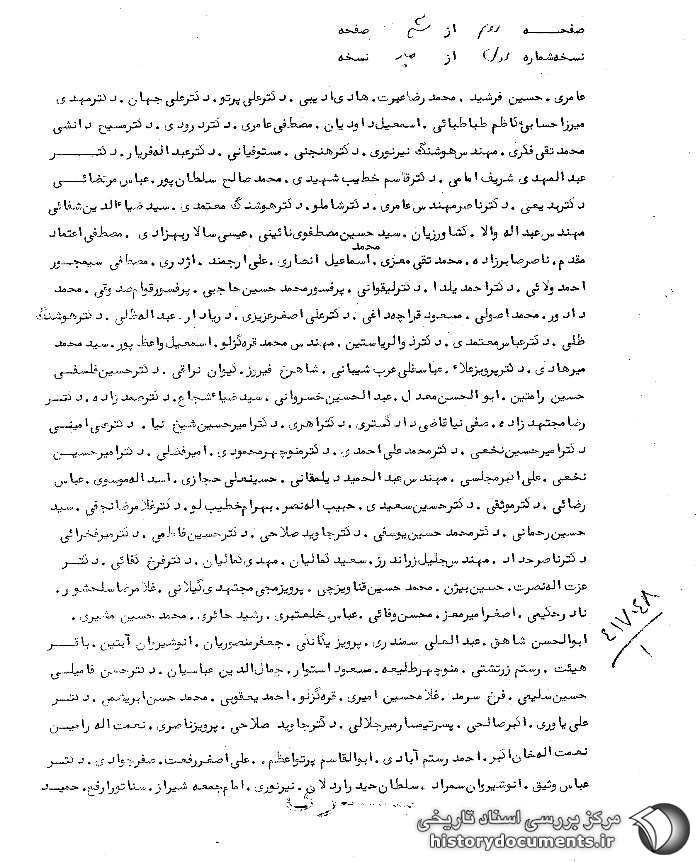 صفحه دوم از صفحه
نسخه شماره از چهار نسخه
عامری، حسین فرشید، محمد رضا عیرت، هادی ادیبی، دکتر علی پرتو، دکتر علی جهان، دکتر مهدی
میرزا حسابی، کاظم طباطبائی، اسمعیل داودیان، مصطفی عامری، دکتر درودی، دکتر مسیح دانشی
محمد تقی فکری، مهندس هوشنگ نیرنوری، دکتر هنجنی، مستوفیانی، دکتر عبداله فریار، دکتر
عبدالمهدی شریف امامی، دکتر قاسم خطیب شهیدی، محمد صالح سلطان پور، عباس مرتضائی
دکتر بدیعی، دکتر ناصر مهندس عامری، دکتر شاملو، دکتر هوشنگ معتمدی، سید ضیاءالدین شفائی
مهندس عبداله والا، کشاورزیان، سید حسین مصطفوی نائینی، عیسی سالار بهزادی، مصطفی اعتماد
محمد
مقدم، ناصر صابرزاده، محمد تقی معزی، اسماعیل انصاری، علی ارجمند، اژدری، مصطفی سیمجور
احمد ولائی، دکتر احمد یلدا، دکتر لیقوانی، پرفسور محمد حسین حاجبی، پرفسور قوام صدوقی، محمد
دادور، محمد اصولی، مسعود قراچه داغی، دکتر علی اصغر عزیزی، دریادار، عبداله ظلی، دکتر هوشنگ
ظلی، دکتر عباس معتمدی، دکتر ذوالریاستین، مهندس محمد قره گزلو، اسمعیل واعظ پور، سید محمد
میرهادی، دکتر پرویز علاء، عباسقلی عرب شیبانی، شاهرخ فیروز، کیوان نراقی، دکتر حسین فلسفی
حسین رامتین، ابوالحسن معدل، عبدالحسین خسروانی، سید ضیاء شجاع، دکتر صمدزاده، دکتر
رضا مجتهدزاده، صفی نیا قاضی دادگستری، دکتر اهری، دکتر امیرحسین شیخ نیا، دکتر علی امینی
دکتر امیرحسین نخعی، دکتر محمد علی احمدی، دکتر منوچهر محمودی، امیر فضلی، دکتر امیرحسین
نخعی، علی اکبر مجلسی، مهندس عبدالحمید یلمقانی، حسینعلی حجازی، اسداله موسوی، عباس
رضائی، دکتر موثقی، دکتر حسین سعیدی، حبیب اله نصر، بهرام خطیب لو، دکتر غلامرضا نجفی، سید
حسین رحمانی، دکتر محمد حسین یوسفی، دکتر جاوید صلاحی، دکتر حسین فاطمی، دکتر میرفخرائی
دکتر ناصر حداد، مهندس جلیل زراندرز، سعید کمالیان، مهدی کمالیان، دکتر فرخ کفائی، دکتر
عزت اله نصرت، حسین بیژن، محمد حسین قناویزچی، پرویز مجی مجتهدی گیلانی، غلامرضا سلحشور،
نادر حکیمی، اصغر امیر معز، محسن وفائی، عباس خلعتبری، رشید حائری، محمد حسین مشیری،
ابوالحسن شاهق، عبدالعلی سمندری، پرویز یگانگی، جعفر منصوریان، انوشیروان آبتین، باقر
هیئت، رستم زرتشتی، منوچهر طلیعه، مسعود استوار، جمال الدین عباسیان، دکتر حسن فامیلی
حسین سلیمی، فرخ سرمد، غلامحسین امیری، قره گزلو، احمد یعقوبی، محمد حسن ابریشمی، دکتر
علی یاوری، اکبر صالحی، پسر تیمسار میرجلالی، دکتر جاوید صلاحی، پرویز ناصری، نعمت اله رامین
نعمت اله خان اکبر، احمد رستم آبادی، ابوالقاسم پرتو اعظم، علی اصغر رفعت، صفر جوادی، دکتر
عباس وثیق، انوشیروان سمراد، سلطان حیدر اردلان، نیرنوری، امام جمعه شیراز، سناتور افخ، حمید
۴۱۷۰۴۸
۱
مرکز بررسی اسناد تاریخی
historydocuments.ir